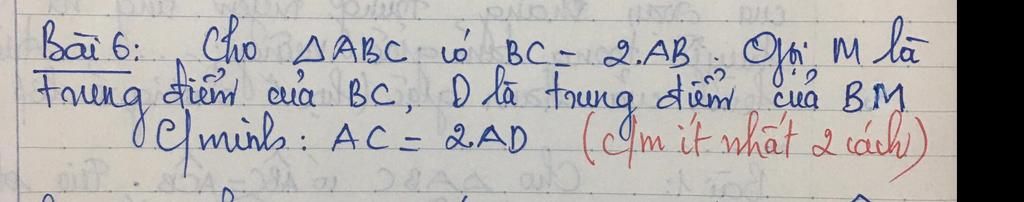 Bài 6: Cho △ABC có BC = 2.AB. Gọi M là
trung điểm của BC, D là trung điểm của BM
C/minh: AC = 2AD (c/m ít nhất 2 cách)